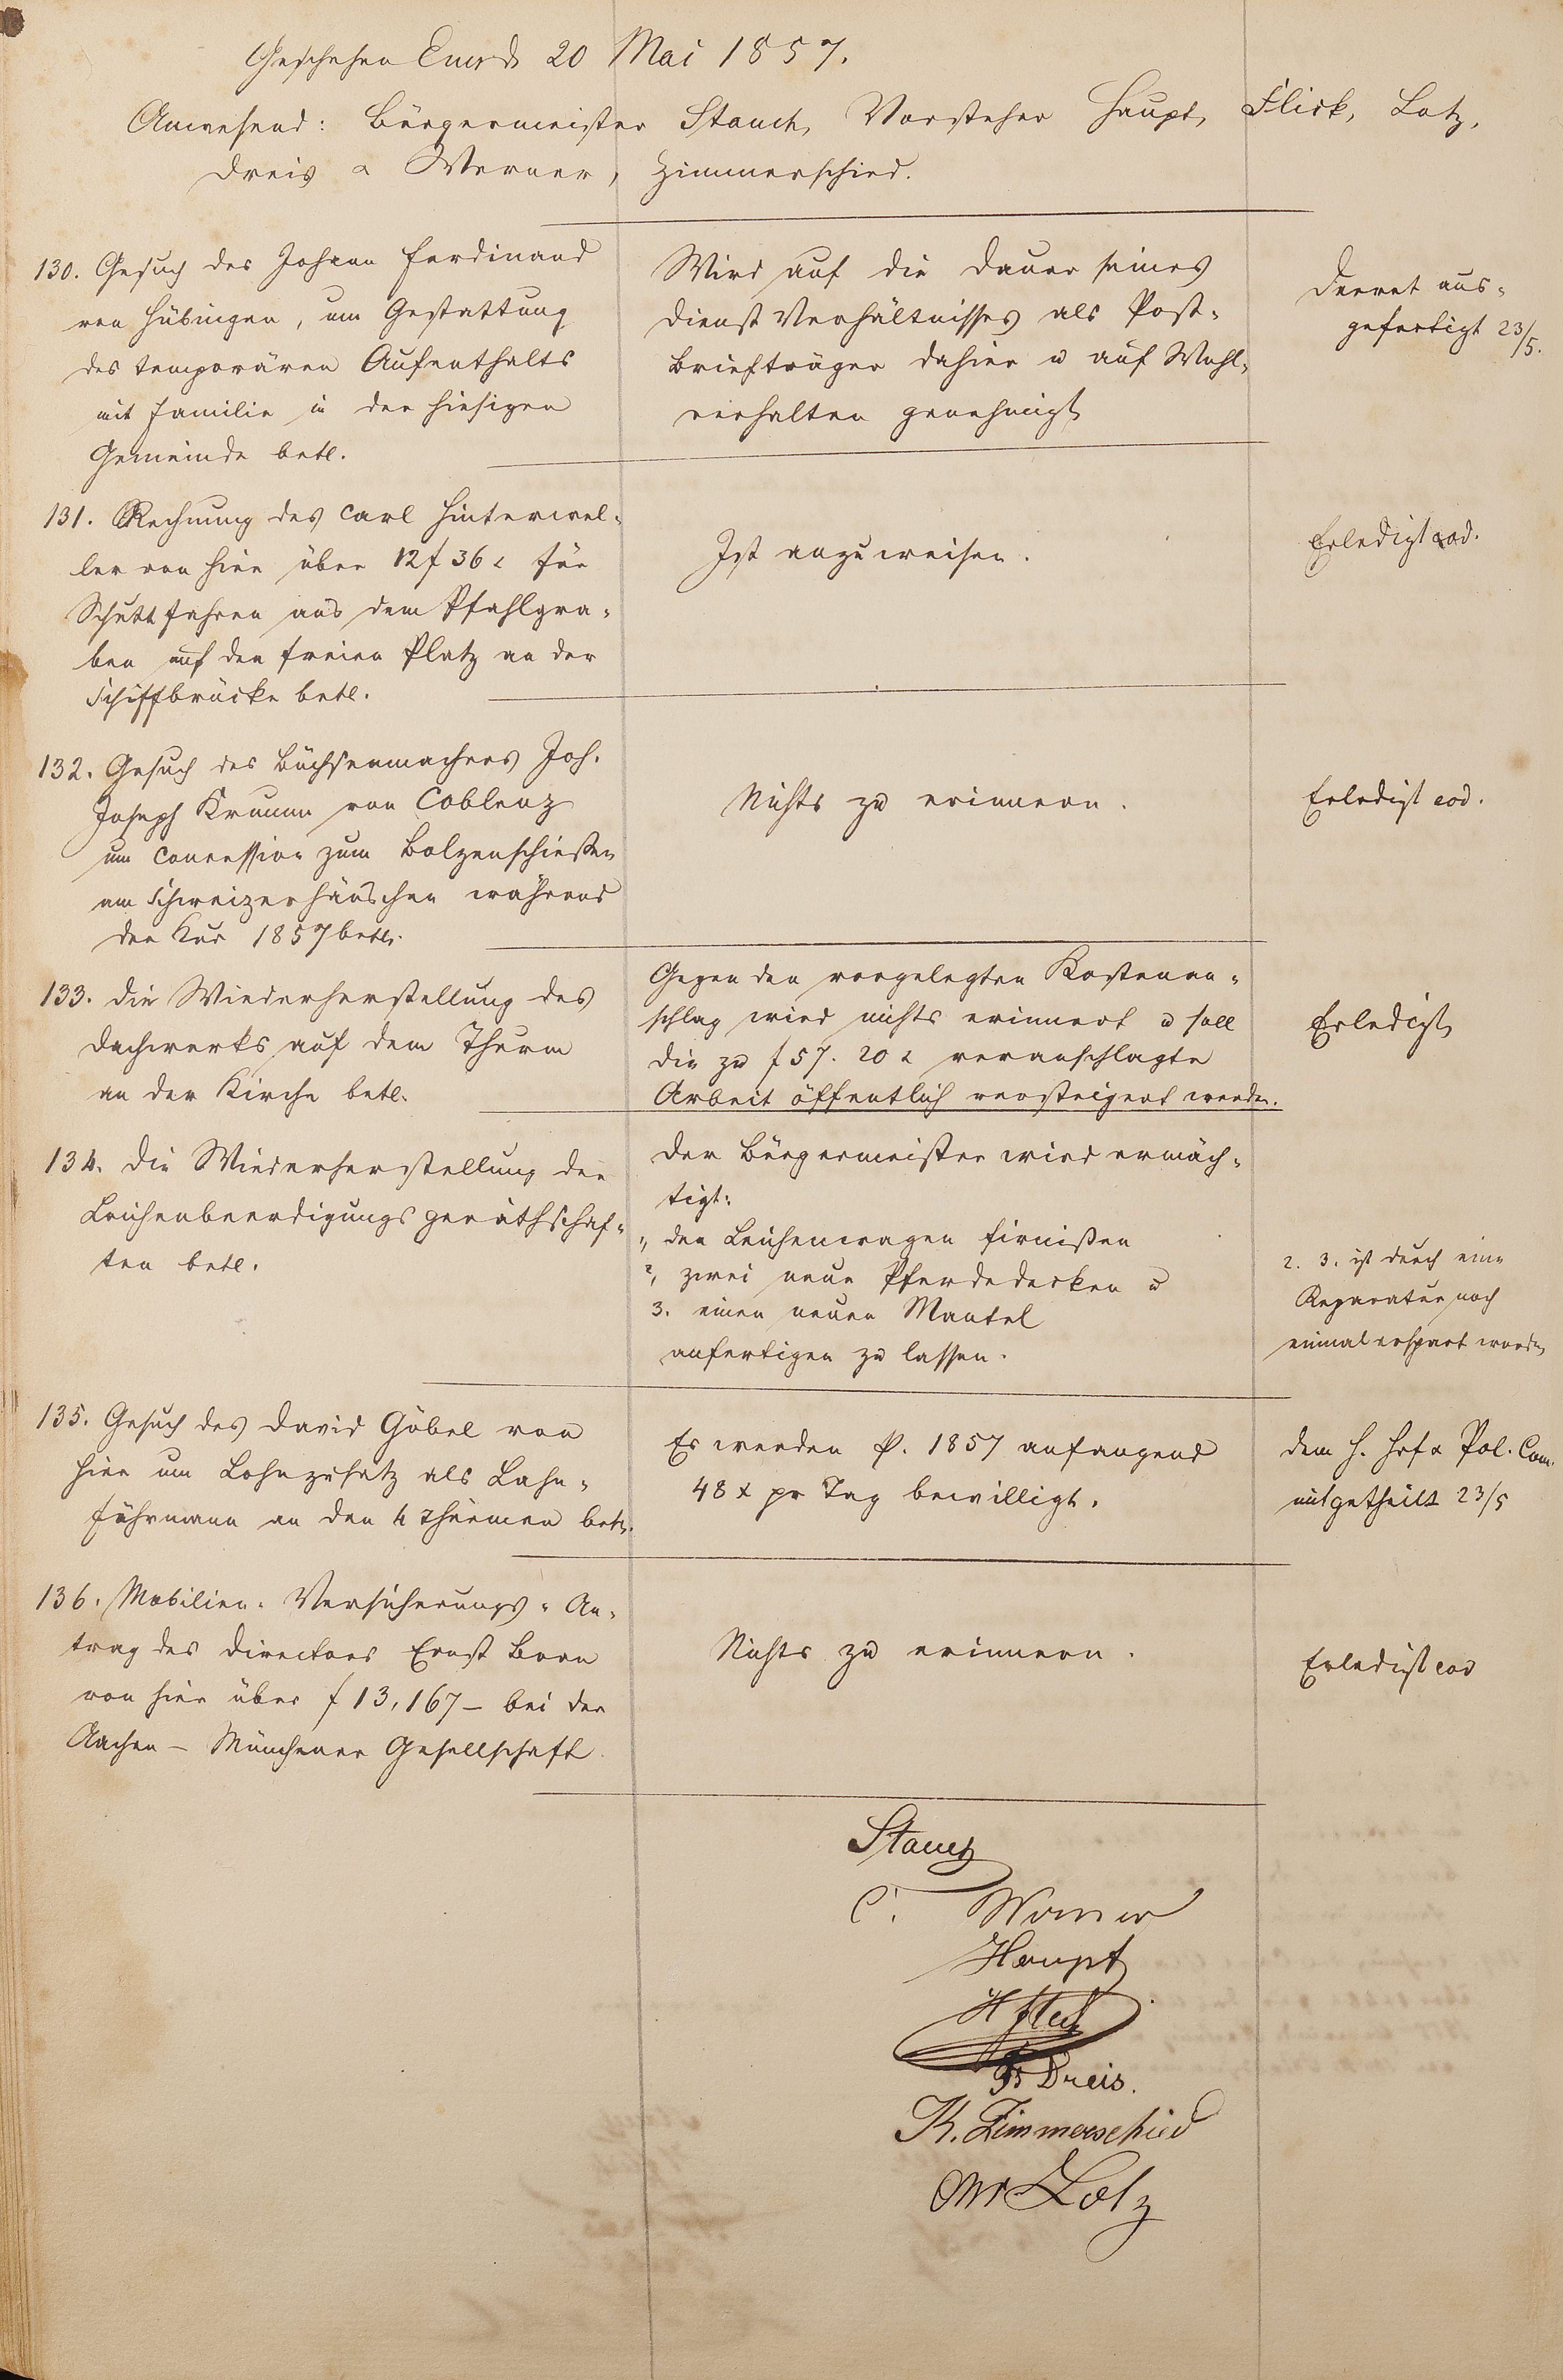 Geschehen Ems d. 20 Mai 1857.
Anwesend: Bürgermeister Stauch, Vorsteher Haupt, Flick, Lotz,
Dreis & Werner, Zimmerschied.
130. Gesuch des Johann Ferdinand
von Hübingen, um Gestattung
des temporären Aufenthalts
mit Familie in der hiesigen
Gemeinde betr.
Wird auf die Dauer seines
Dienst Verhältnisses als Post-
briefträger dahier u auf Wohl-
verhalten genehmigt
Decret aus-
gefertigt 23/5.
131. Rechnung des Carl Hinterwel-
ler von hier über 12 f 36 x für
Schuttfahren aus dem Pfahlgra-
ben auf den freien Platz an der
Schiffbrücke betr.
Ist anzuweisen.
Erledigt eod.
132. Gesuch des Büchsenmachers Joh.
Joseph Krumm von Coblenz
um Concession zum Bolzenschießen
am Schweizerhäuschen während
der Kur 1857 betr.
Nichts zu erinnern.
Erledigt eod.
133. Die Wiederherstellung des
Dachwerks auf dem Thurm
an der Kirche betr.
Gegen den vorgelegten Kostenan-
schlag wird nichts erinnert u soll
die zu f 57. 20 x veranschlagte
Arbeit öffentlich versteigert werden.
Erledigt
134. Die Wiederherstellung der
Leichenbeerdigungsgeräthschaf-
ten betr.
Der Bürgermeister wird ermäch-
tigt:
1, den Leichenwagen firnißen
2, zwei neue Pferdedecken u
3. einen neuen Mantel
anfertigen zu lassen.
2. 3. ist durch eine
Reparatur noch
einmal erspart worden
135. Gesuch des David Göbel von
hier um Lohnzusatz als Bahn-
führmann an den 4 Thürmen betr.
Es werden p. 1857 anfangend
48 x pr Tag bewilligt.
dem H. Pol. Com.
mitgetheilt 23/5
136. Mobilien-Versicherungs-An-
trag des Directors Ernst Born
von hier über f 13,167 – bei der
Aachen – Münchener Gesellschaft
Nichts zu erinnern.
Erledigt eod
Stauch
C. Werner
Haupt
H Flick
Fr Dreis.
K. Zimmerschied
Lotz